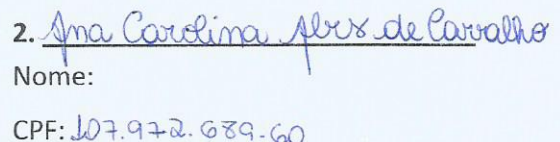 2. Ana Carolina Alves de Carvalho
Nome:
CPF: 107.972.689-60